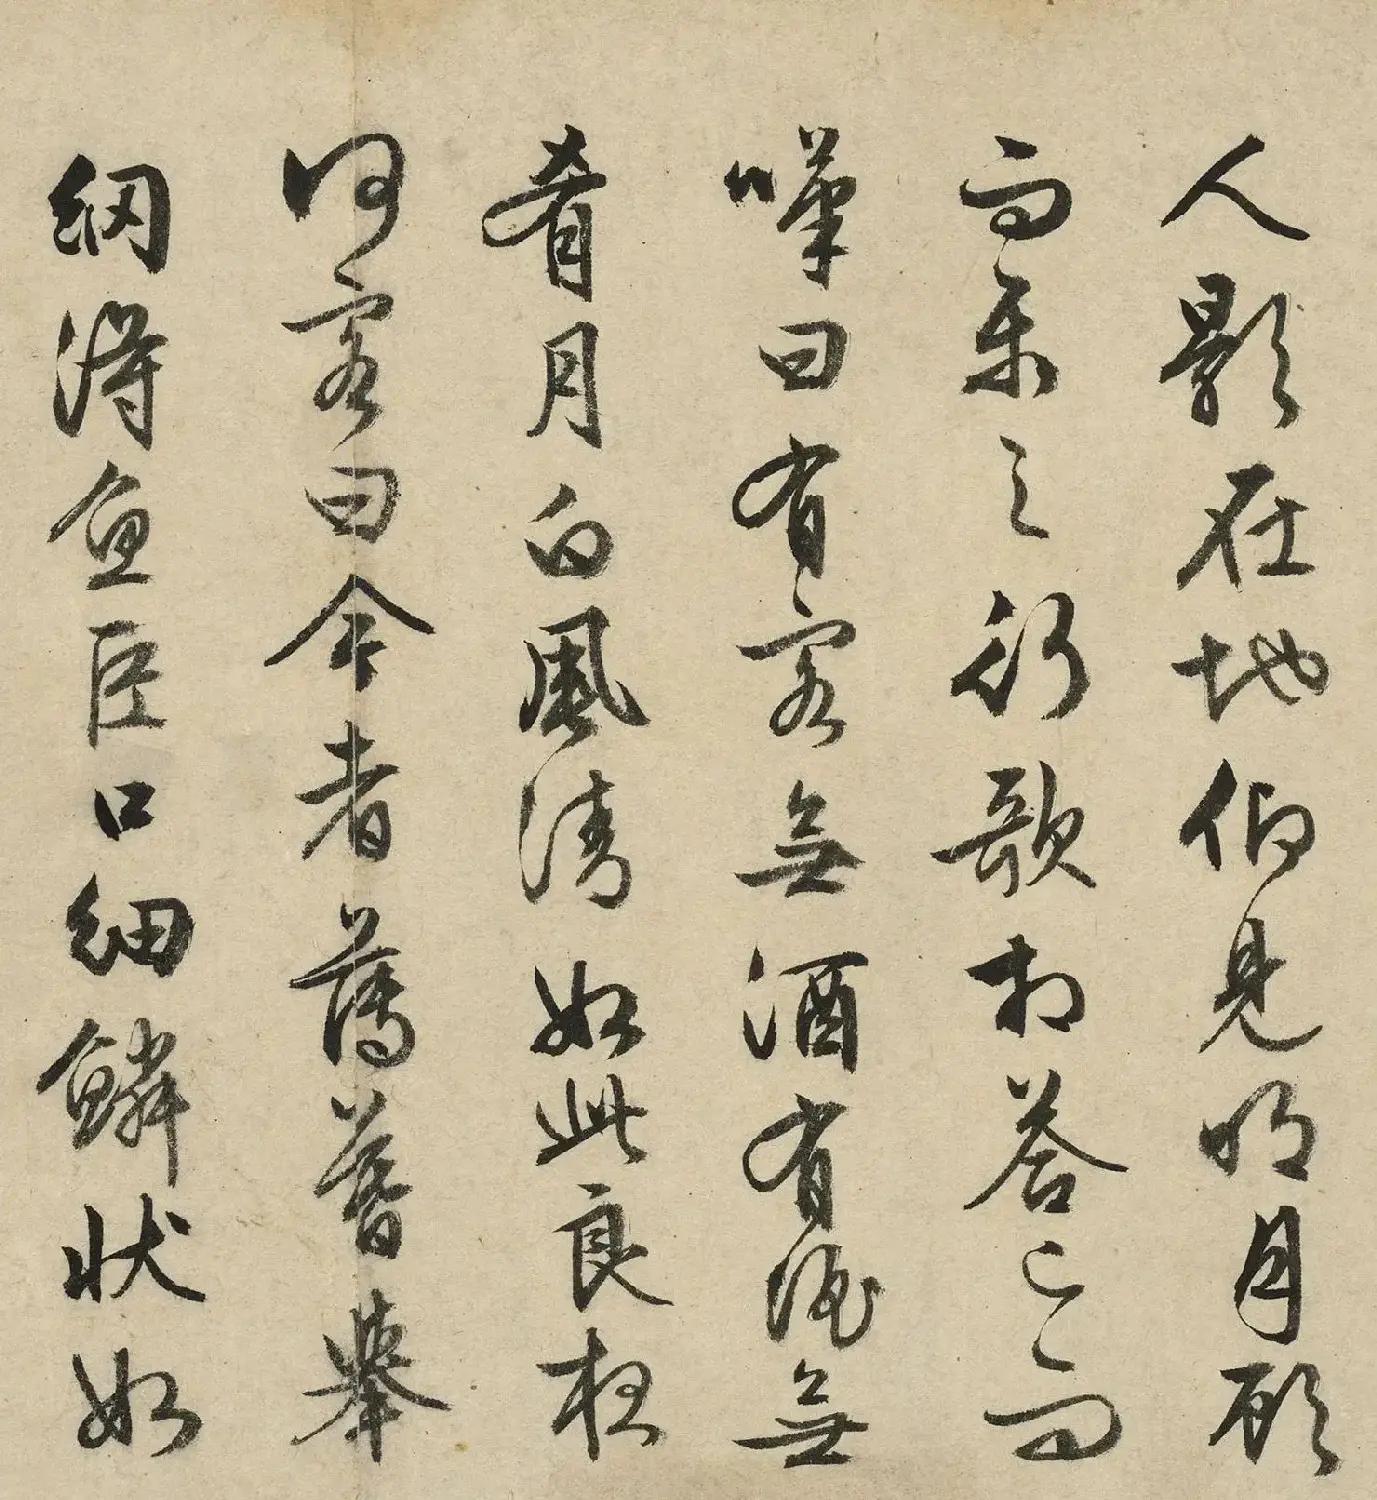 人影在地仰見明月顧
而樂之行歌相答已而
嘆曰有客無酒有酒無
肴月白風清如此良夜
何客曰今者薄暮舉
網得魚巨口細鱗狀如